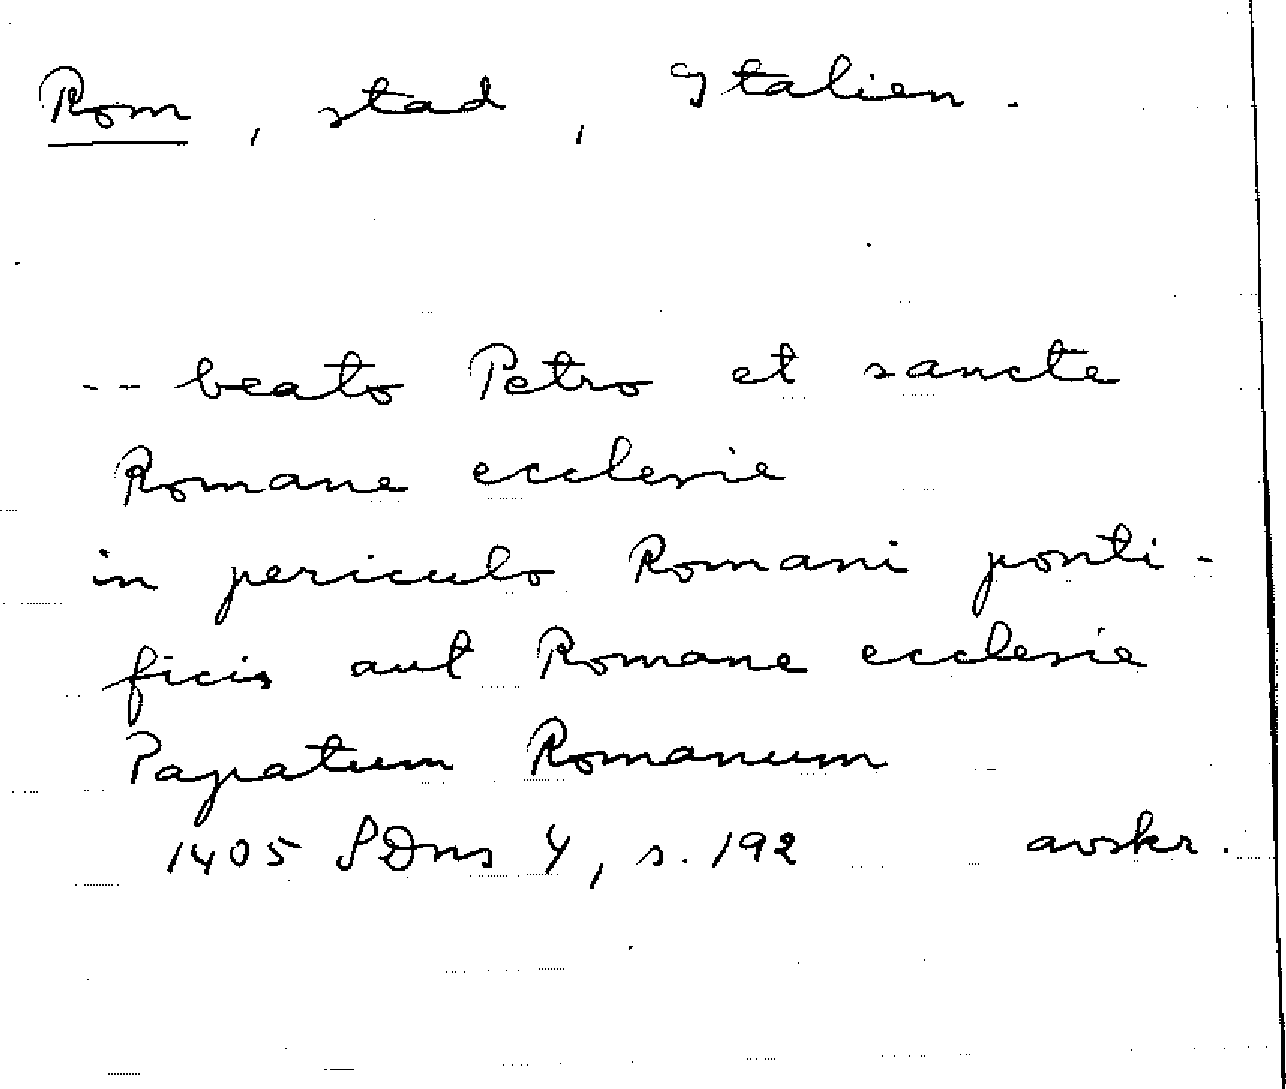 Rom, stad, Italien.
-- beato Petro et sancte
Romane ecclesie
in periculo Romani ponti-
ficis aut Romane ecclesie
Papatum Romanum
1405 SDns 4, s. 192 avskr.